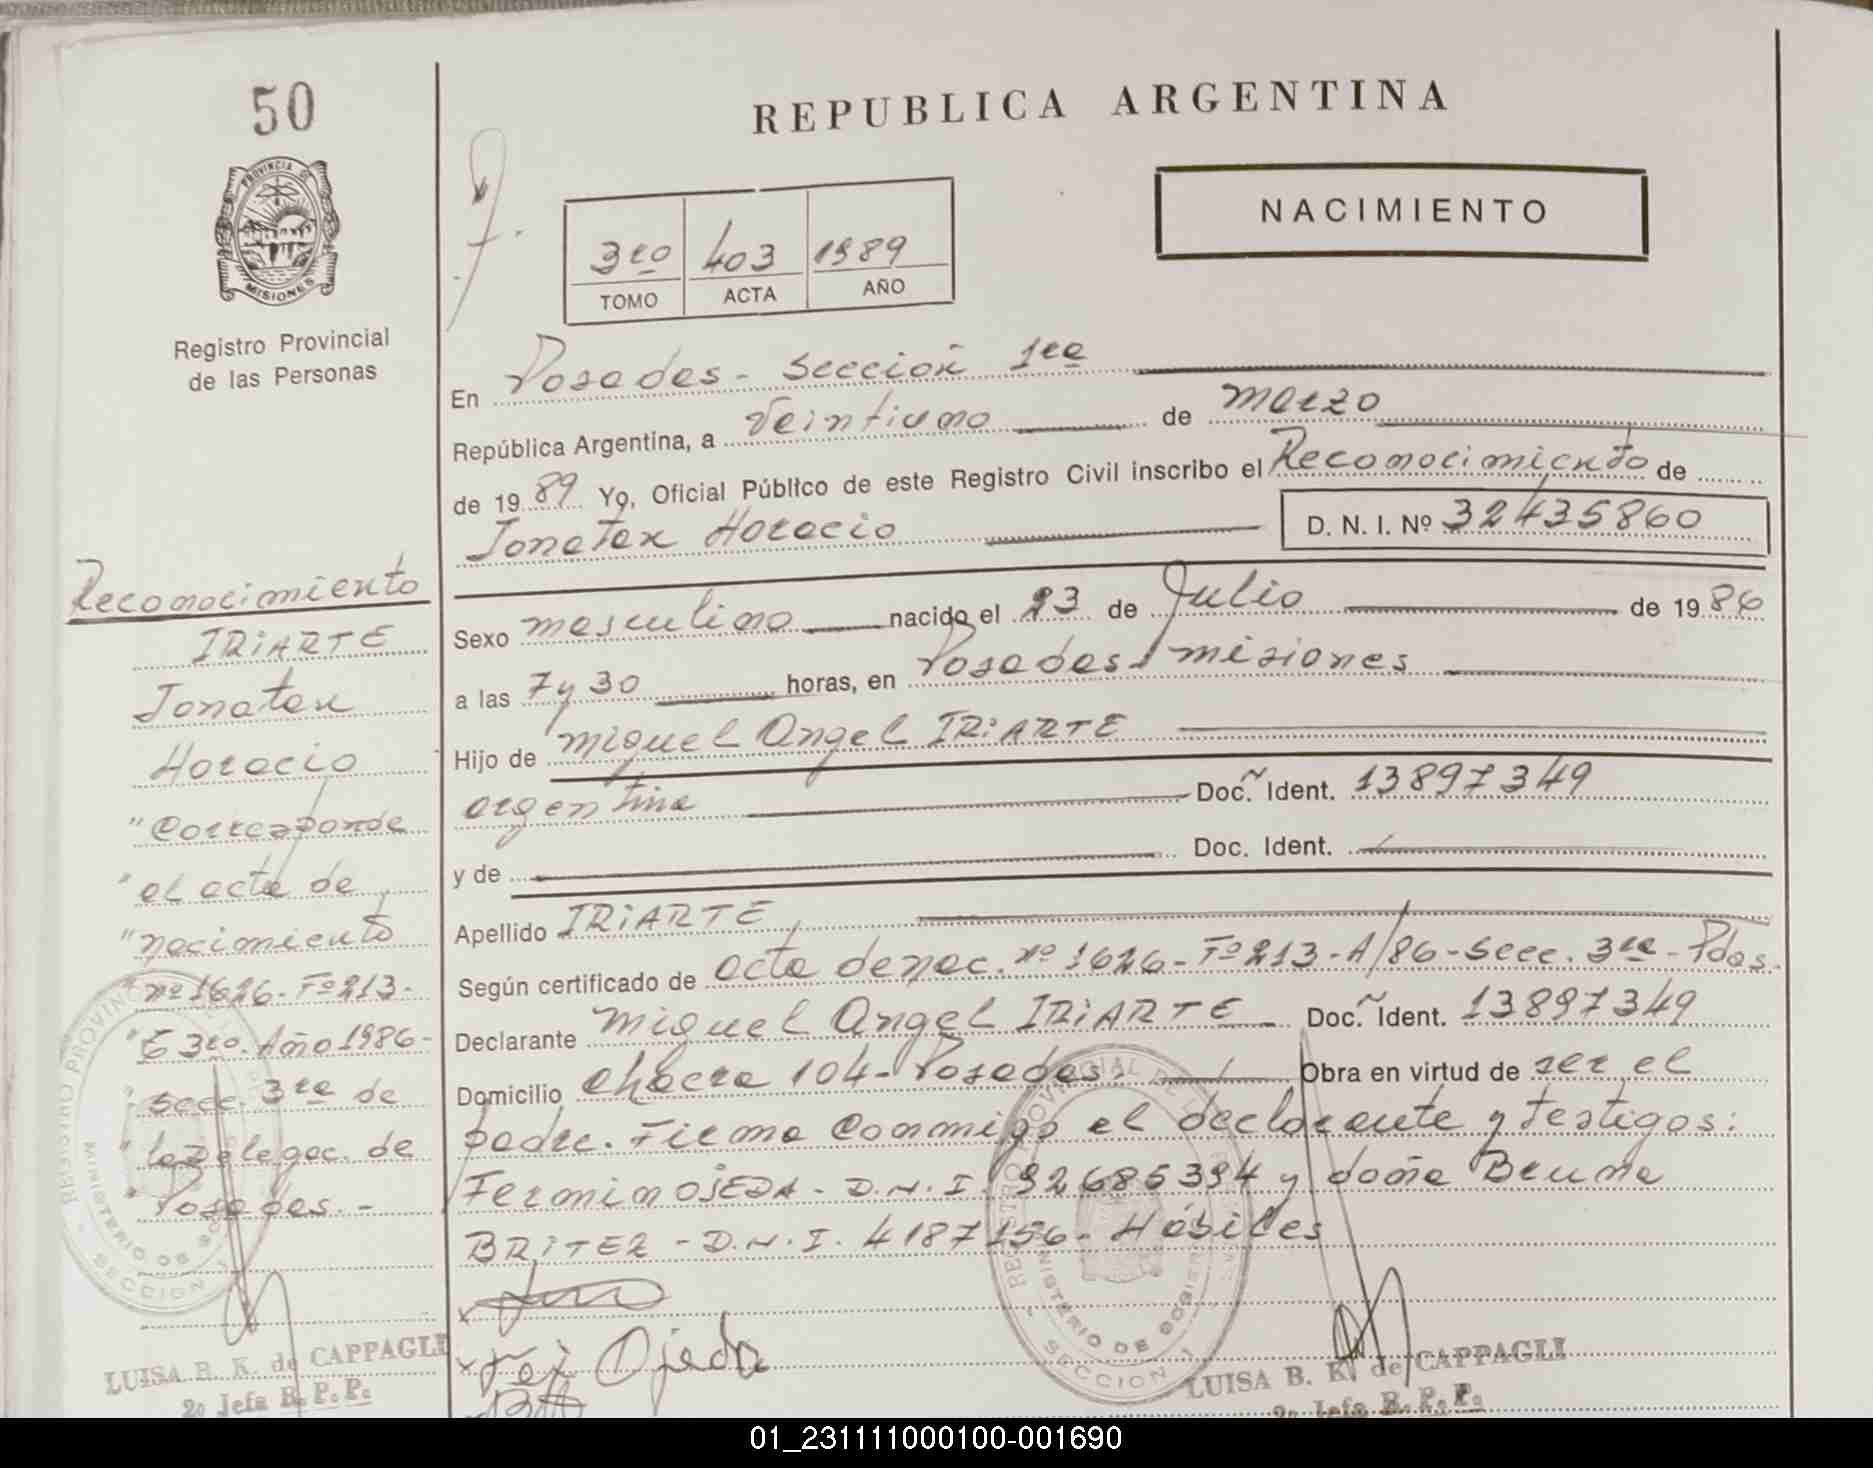 50
REPUBLICA ARGENTINA
PROVINCIA DE
MISIONES
NACIMIENTO
3ro 403 1989
TOMO ACTA AÑO
Registro Provincial
de las Personas
En Posadas - Sección 1ra
República Argentina, a Veintiuno de Marzo
de 1989 Yo, Oficial Público de este Registro Civil inscribo el Reconocimiento de
Jonatan Horacio D. N. I. Nº 32435860
Sexo masculino nacido el 23 de Julio de 1986
a las 7 y 30 horas, en Posadas, misiones
Hijo de Miguel Angel IRIARTE
argentina Doc. Ident. 13897349
y de Doc. Ident.
Apellido IRIARTE
Según certificado de acta de nac. nº 1626 - Fº 213 - A/86 - Secc. 3ra - Pdas.
Declarante Miguel Angel IRIARTE Doc. Ident. 13897349
Domicilio Chacra 104 - Posadas. Obra en virtud de ser el
padre. Firma conmigo el declarante y testigos:
Fermin OJEDA - D.N.I. 92685394 y doña Bruna
BRITEZ - D.N.I. 4187156 - Hábiles
Ojeda
LUISA B. K. de CAPPAGLI
2º Jefa R. P. P.
Reconocimiento
IRIARTE
Jonatan
Horacio
"Corresponde
"al acta de
"nacimiento
"nº 1626 - Fº 213 -
"T 3ro. Año 1986 -
"Secc. 3ra de
"la Delegac. de
"Posadas. -
REGISTRO PROVINCIAL
MINISTERIO DE GOBIERNO
SECCION 1
LUISA B. K. de CAPPAGLI
2º Jefa R. P. P.
01_231111000100-001690